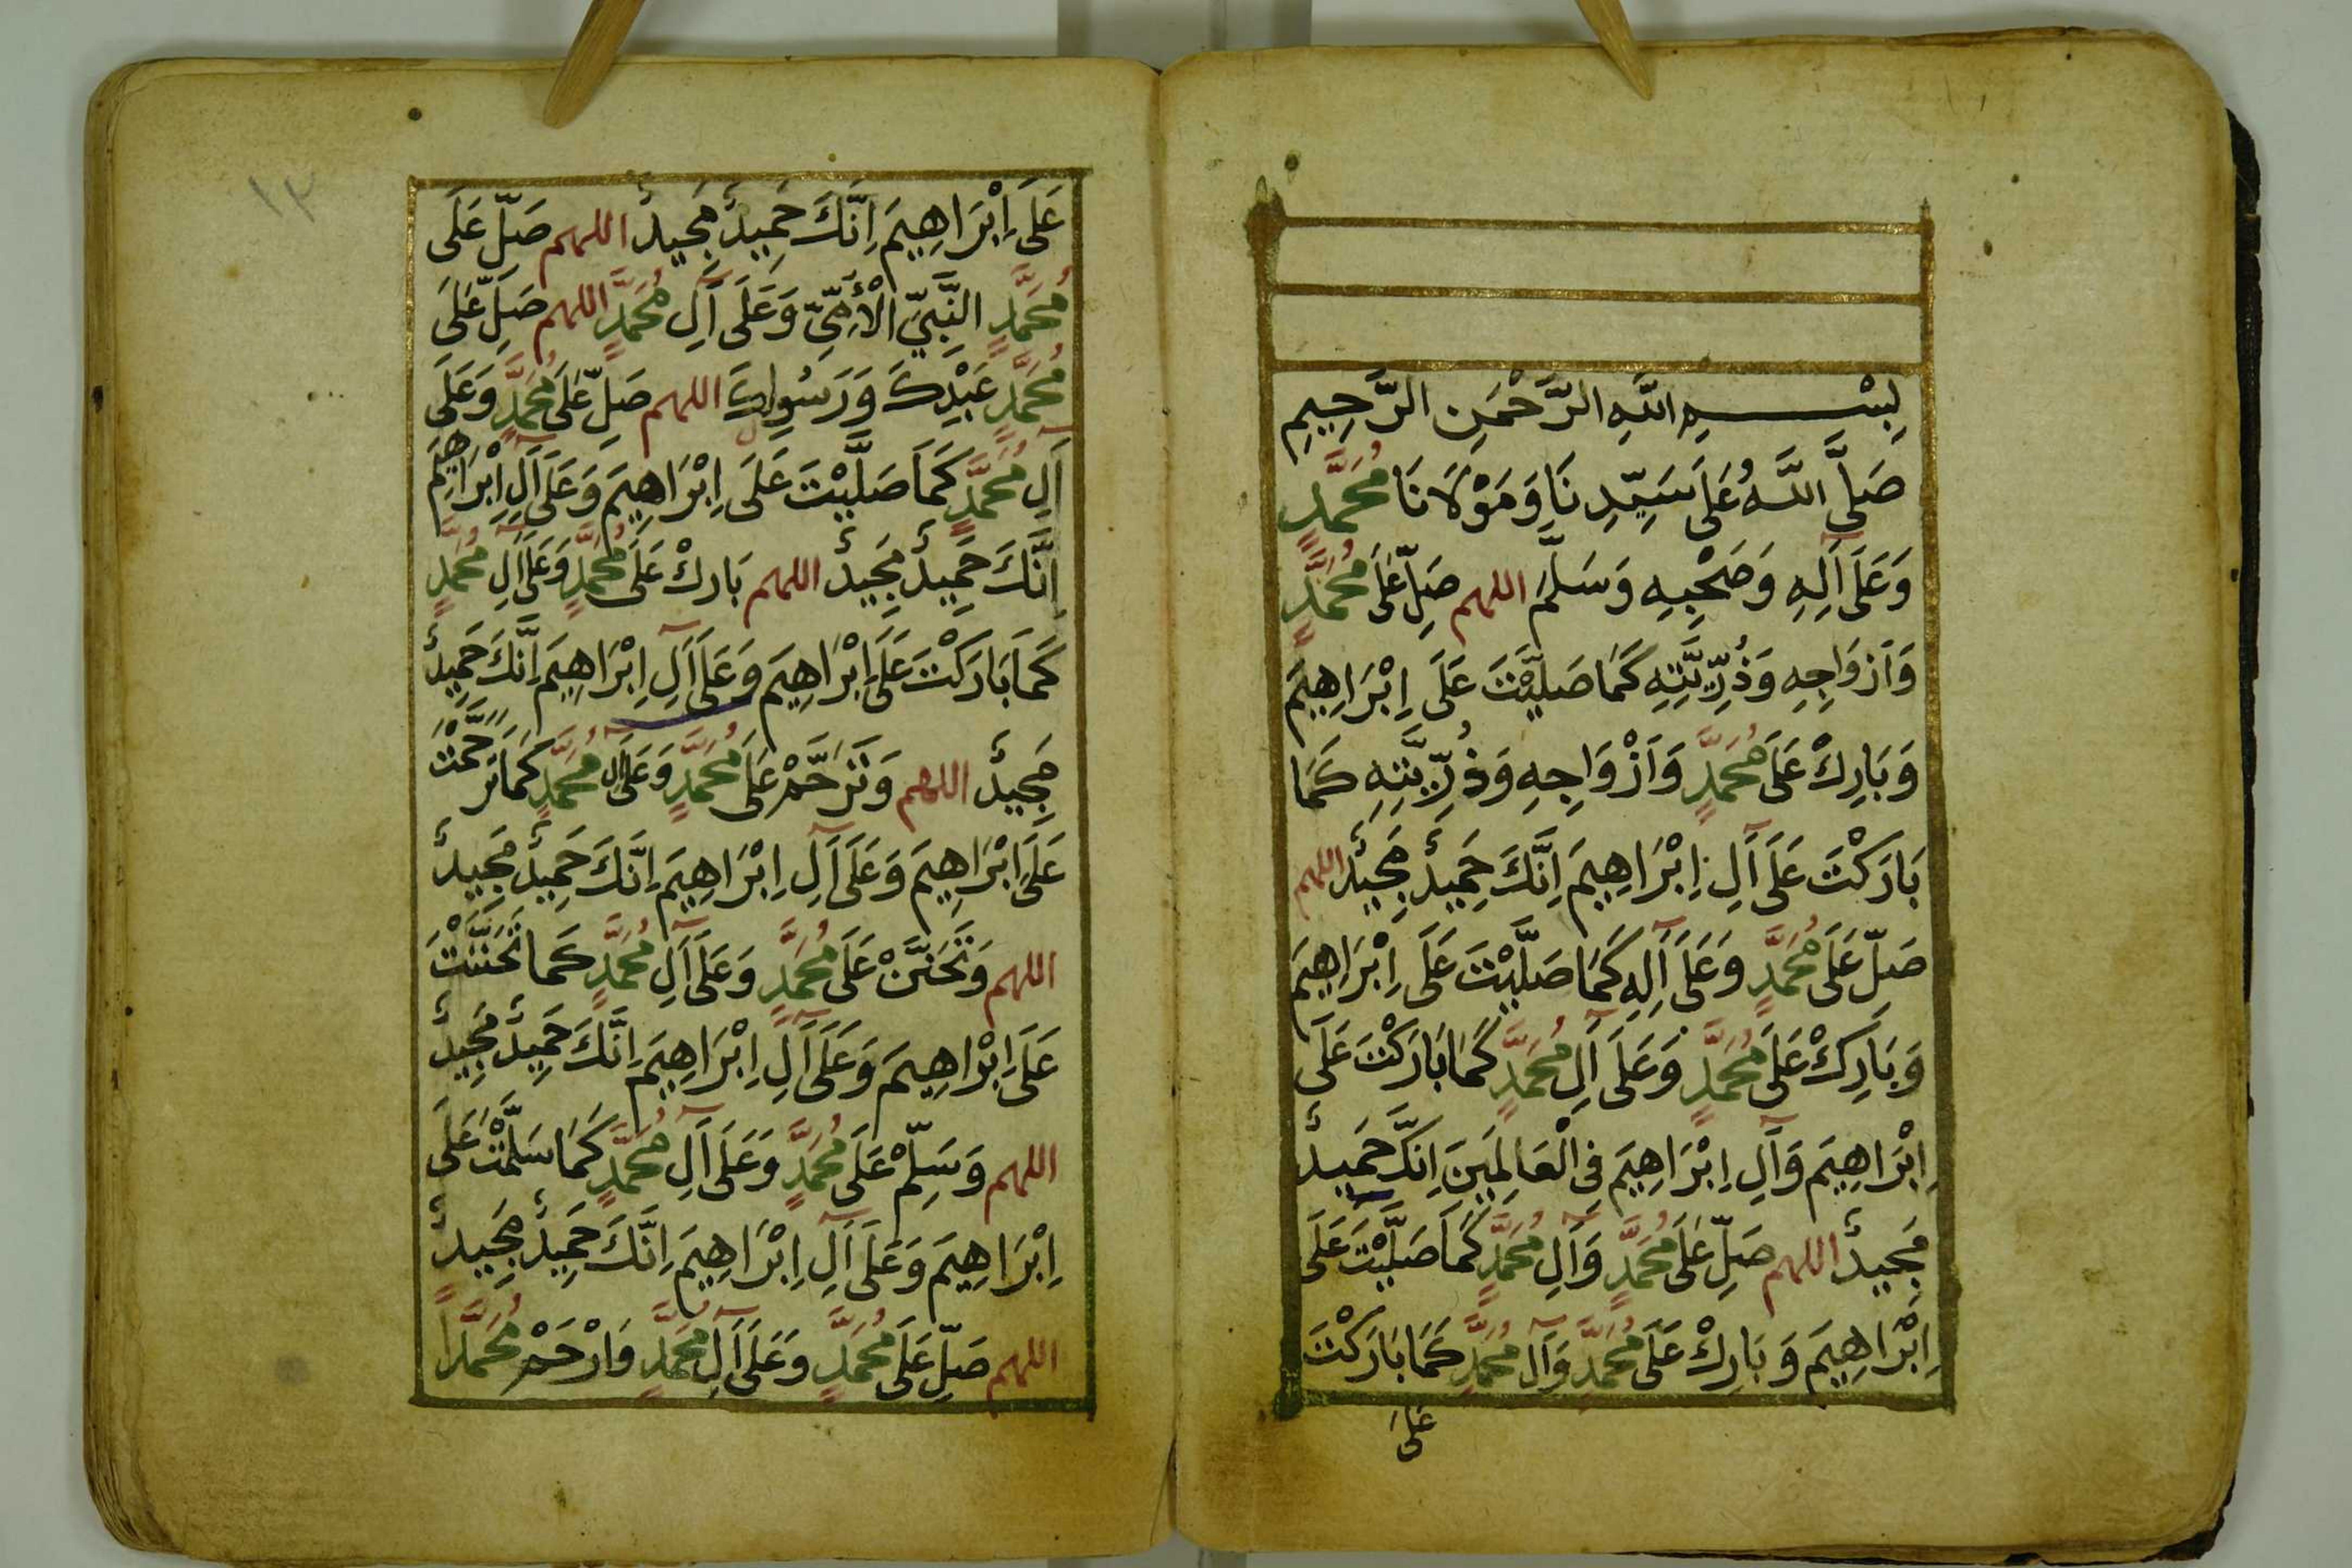 بِسْمِ اللَّهِ الرَّحْمَنِ الرَّحِيمِ
صَلَّى اللَّهُ عَلَى سَيِّدِنَا وَمَوْلَانَا مُحَمَّدٍ
وَعَلَى آلِهِ وَصَحْبِهِ وَسَلَّمَ اللهم صَلِّ عَلَى مُحَمَّدٍ
وَأَزْوَاجِهِ وَذُرِّيَّتِهِ كَمَا صَلَّيْتَ عَلَى اِبْرَاهِيمَ
وَبَارِكْ عَلَى مُحَمَّدٍ وَأَزْوَاجِهِ وَذُرِّيَّتِهِ كَمَا
بَارَكْتَ عَلَى آلِ اِبْرَاهِيمَ اِنَّكَ حَمِيدٌ مَجِيدٌ اللهم
صَلِّ عَلَى مُحَمَّدٍ وَعَلَى آلِهِ كَمَا صَلَّيْتَ عَلَى اِبْرَاهِيمَ
وَبَارِكْ عَلَى مُحَمَّدٍ وَعَلَى آلِ مُحَمَّدٍ كَمَا بَارَكْتَ عَلَى
اِبْرَاهِيمَ وَآلِ اِبْرَاهِيمَ فِى الْعَالَمِينَ اِنَّكَ حَمِيدٌ
مَجِيدٌ اللهم صَلِّ عَلَى مُحَمَّدٍ وَآلِ مُحَمَّدٍ كَمَا صَلَّيْتَ عَلَى
اِبْرَاهِيمَ وَبَارِكْ عَلَى مُحَمَّدٍ وَآلِ مُحَمَّدٍ كَمَا بَارَكْتَ
عَلَى
١٢
عَلَى اِبْرَاهِيمَ اِنَّكَ حَمِيدٌ مَجِيدٌ اللهم صَلِّ عَلَى
مُحَمَّدٍ النَّبِيِّ الْأُمِّيِّ وَعَلَى آلِ مُحَمَّدٍ اللهم صَلِّ عَلَى
مُحَمَّدٍ عَبْدِكَ وَرَسُولِكَ اللهم صَلِّ عَلَى مُحَمَّدٍ وَعَلَى
آلِ مُحَمَّدٍ كَمَا صَلَّيْتَ عَلَى اِبْرَاهِيمَ وَعَلَى آلِ اِبْرَاهِيمَ
اِنَّكَ حَمِيدٌ مَجِيدٌ اللهم بَارِكْ عَلَى مُحَمَّدٍ وَعَلَى آلِ مُحَمَّدٍ
كَمَا بَارَكْتَ عَلَى اِبْرَاهِيمَ وَعَلَى آلِ اِبْرَاهِيمَ اِنَّكَ حَمِيدٌ
مَجِيدٌ اللهم وَتَرَحَّمْ عَلَى مُحَمَّدٍ وَعَلَى آلِ مُحَمَّدٍ كَمَا تَرَحَّمْتَ
عَلَى اِبْرَاهِيمَ وَعَلَى آلِ اِبْرَاهِيمَ اِنَّكَ حَمِيدٌ مَجِيدٌ
اللهم وَتَحَنَّنْ عَلَى مُحَمَّدٍ وَعَلَى آلِ مُحَمَّدٍ كَمَا تَحَنَّنْتَ
عَلَى اِبْرَاهِيمَ وَعَلَى آلِ اِبْرَاهِيمَ اِنَّكَ حَمِيدٌ مَجِيدٌ
اللهم وَسَلِّمْ عَلَى مُحَمَّدٍ وَعَلَى آلِ مُحَمَّدٍ كَمَا سَلَّمْتَ عَلَى
اِبْرَاهِيمَ وَعَلَى آلِ اِبْرَاهِيمَ اِنَّكَ حَمِيدٌ مَجِيدٌ
اللهم صَلِّ عَلَى مُحَمَّدٍ وَعَلَى آلِ مُحَمَّدٍ وَارْحَمْ مُحَمَّدًا